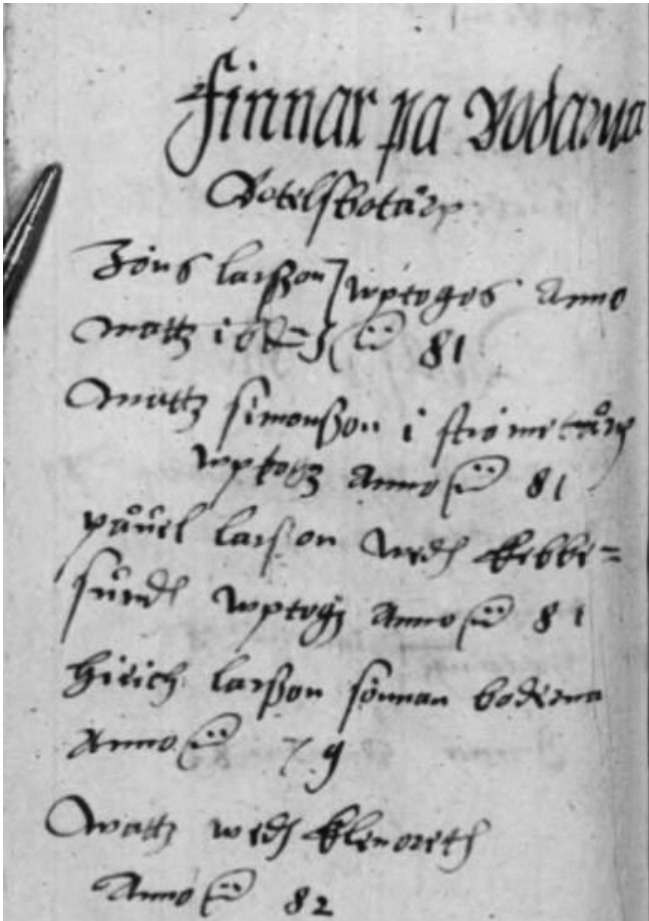 Finnar pa Bodarna
Botelsbotårp
Jöns larsson wptogos Anno
Mattz ibd̄ 81
Mattz simonsson i strömetårp
wptogz Anno 81
påuel larsson wedh kebbe=
sundh wptogz Anno 81
hirich larsson sönnan bodrena
Anno 79
Mattz wedh klenoreth
Anno 82